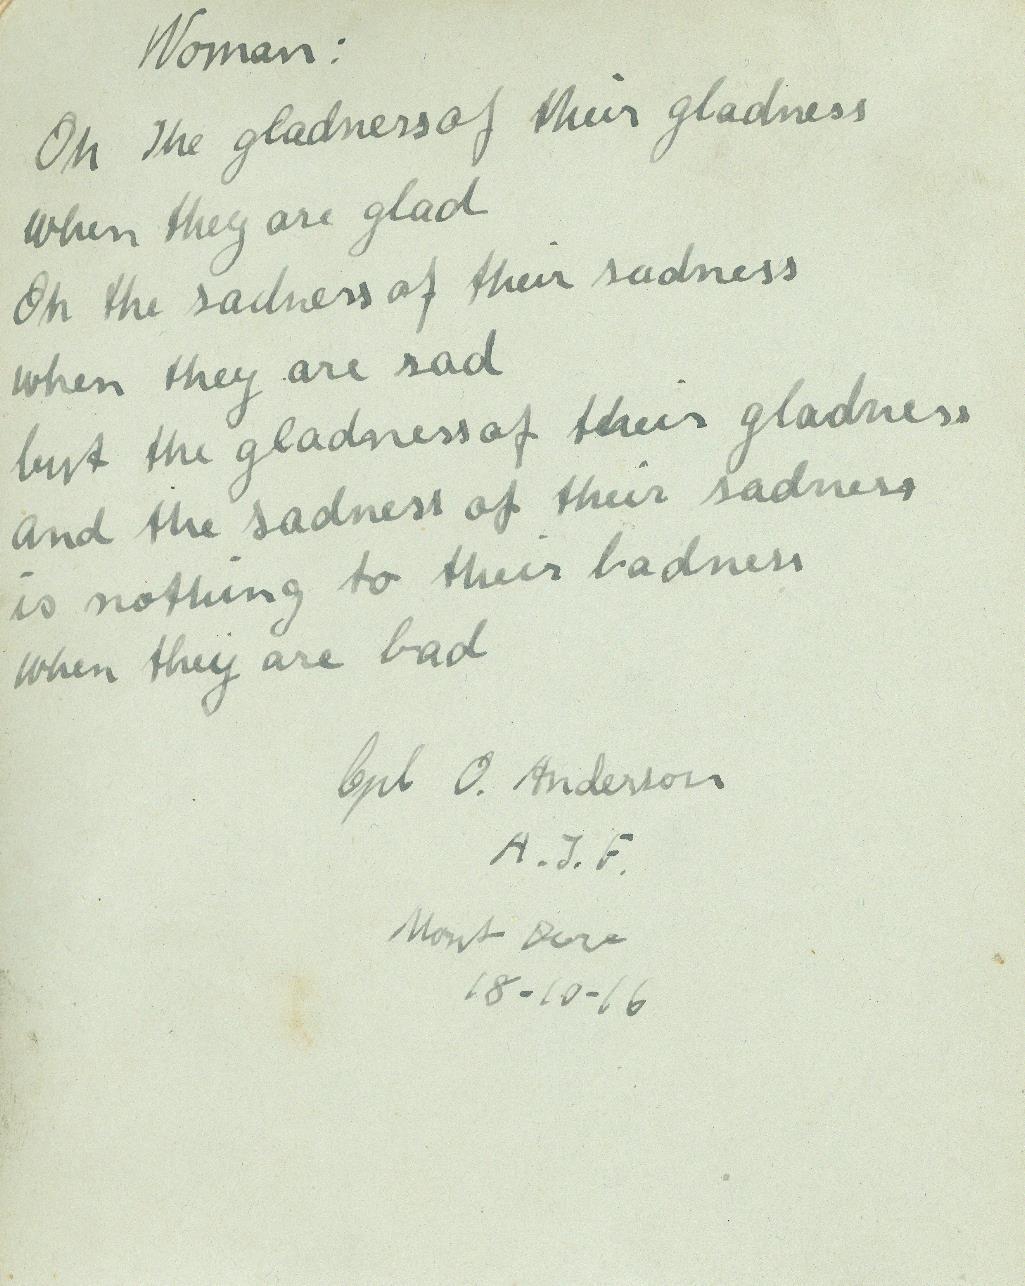 Woman:
Oh The gladness of their gladness
when they are glad
Oh the sadness of their sadness
when they are sad
but the gladness of their gladness
and the sadness of their sadness
is nothing to their badness
when they are bad
Cpl O. Anderson
A.I.F.
Mont Dore
18-10-16